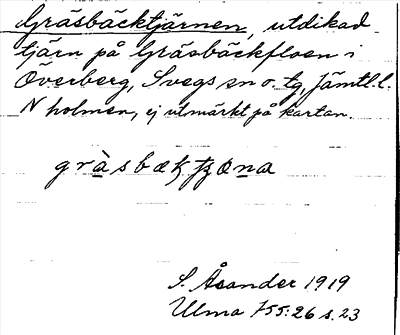 Gräsbäcktjärnen, utdikad
tjärn på Gräsbäckfloen i
Överberg, Svegs sn o. tg, Jämtl. l.
N holmen, ej utmärkt på kartan.
gràsbæk̨ t̨ʒona
S. Åsander 1919
Ulma 155:26 s. 23